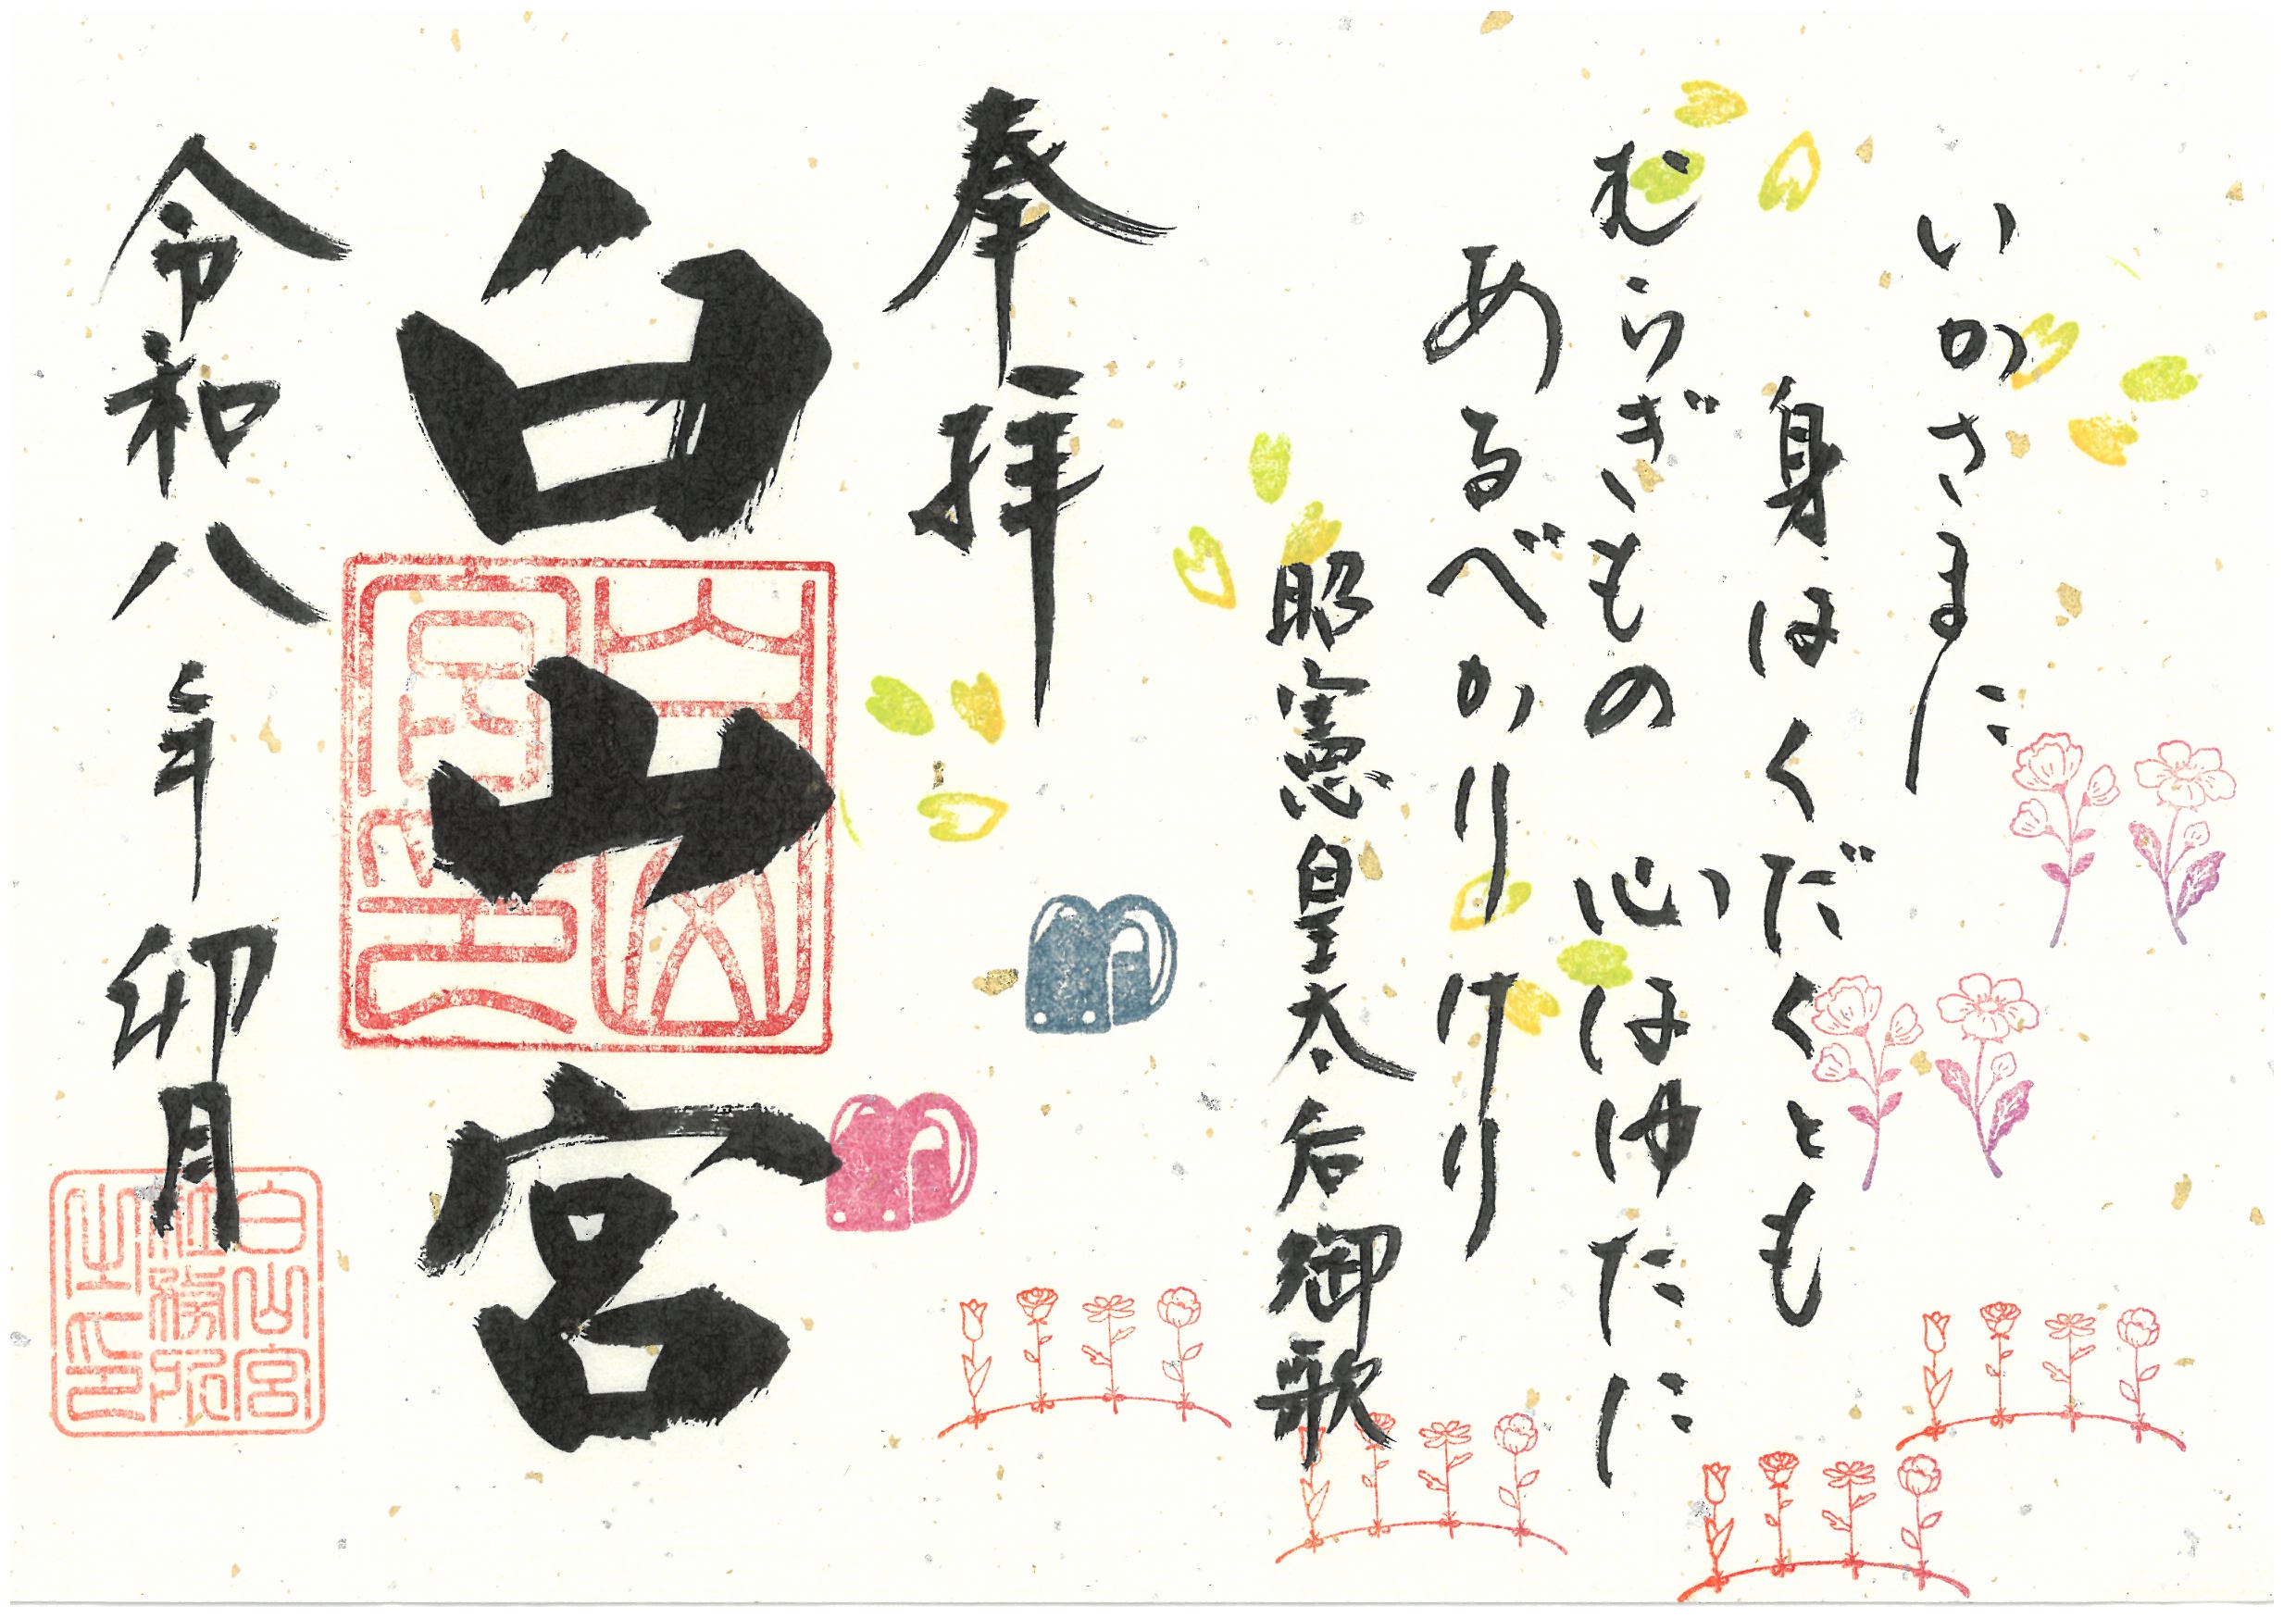 いかさまに
身はくだくとも
むらぎもの 心はゆたに
あるべかりけり
昭憲皇太后御歌
奉拝
白山宮
令和八年卯月
白山宮
社務所
之印